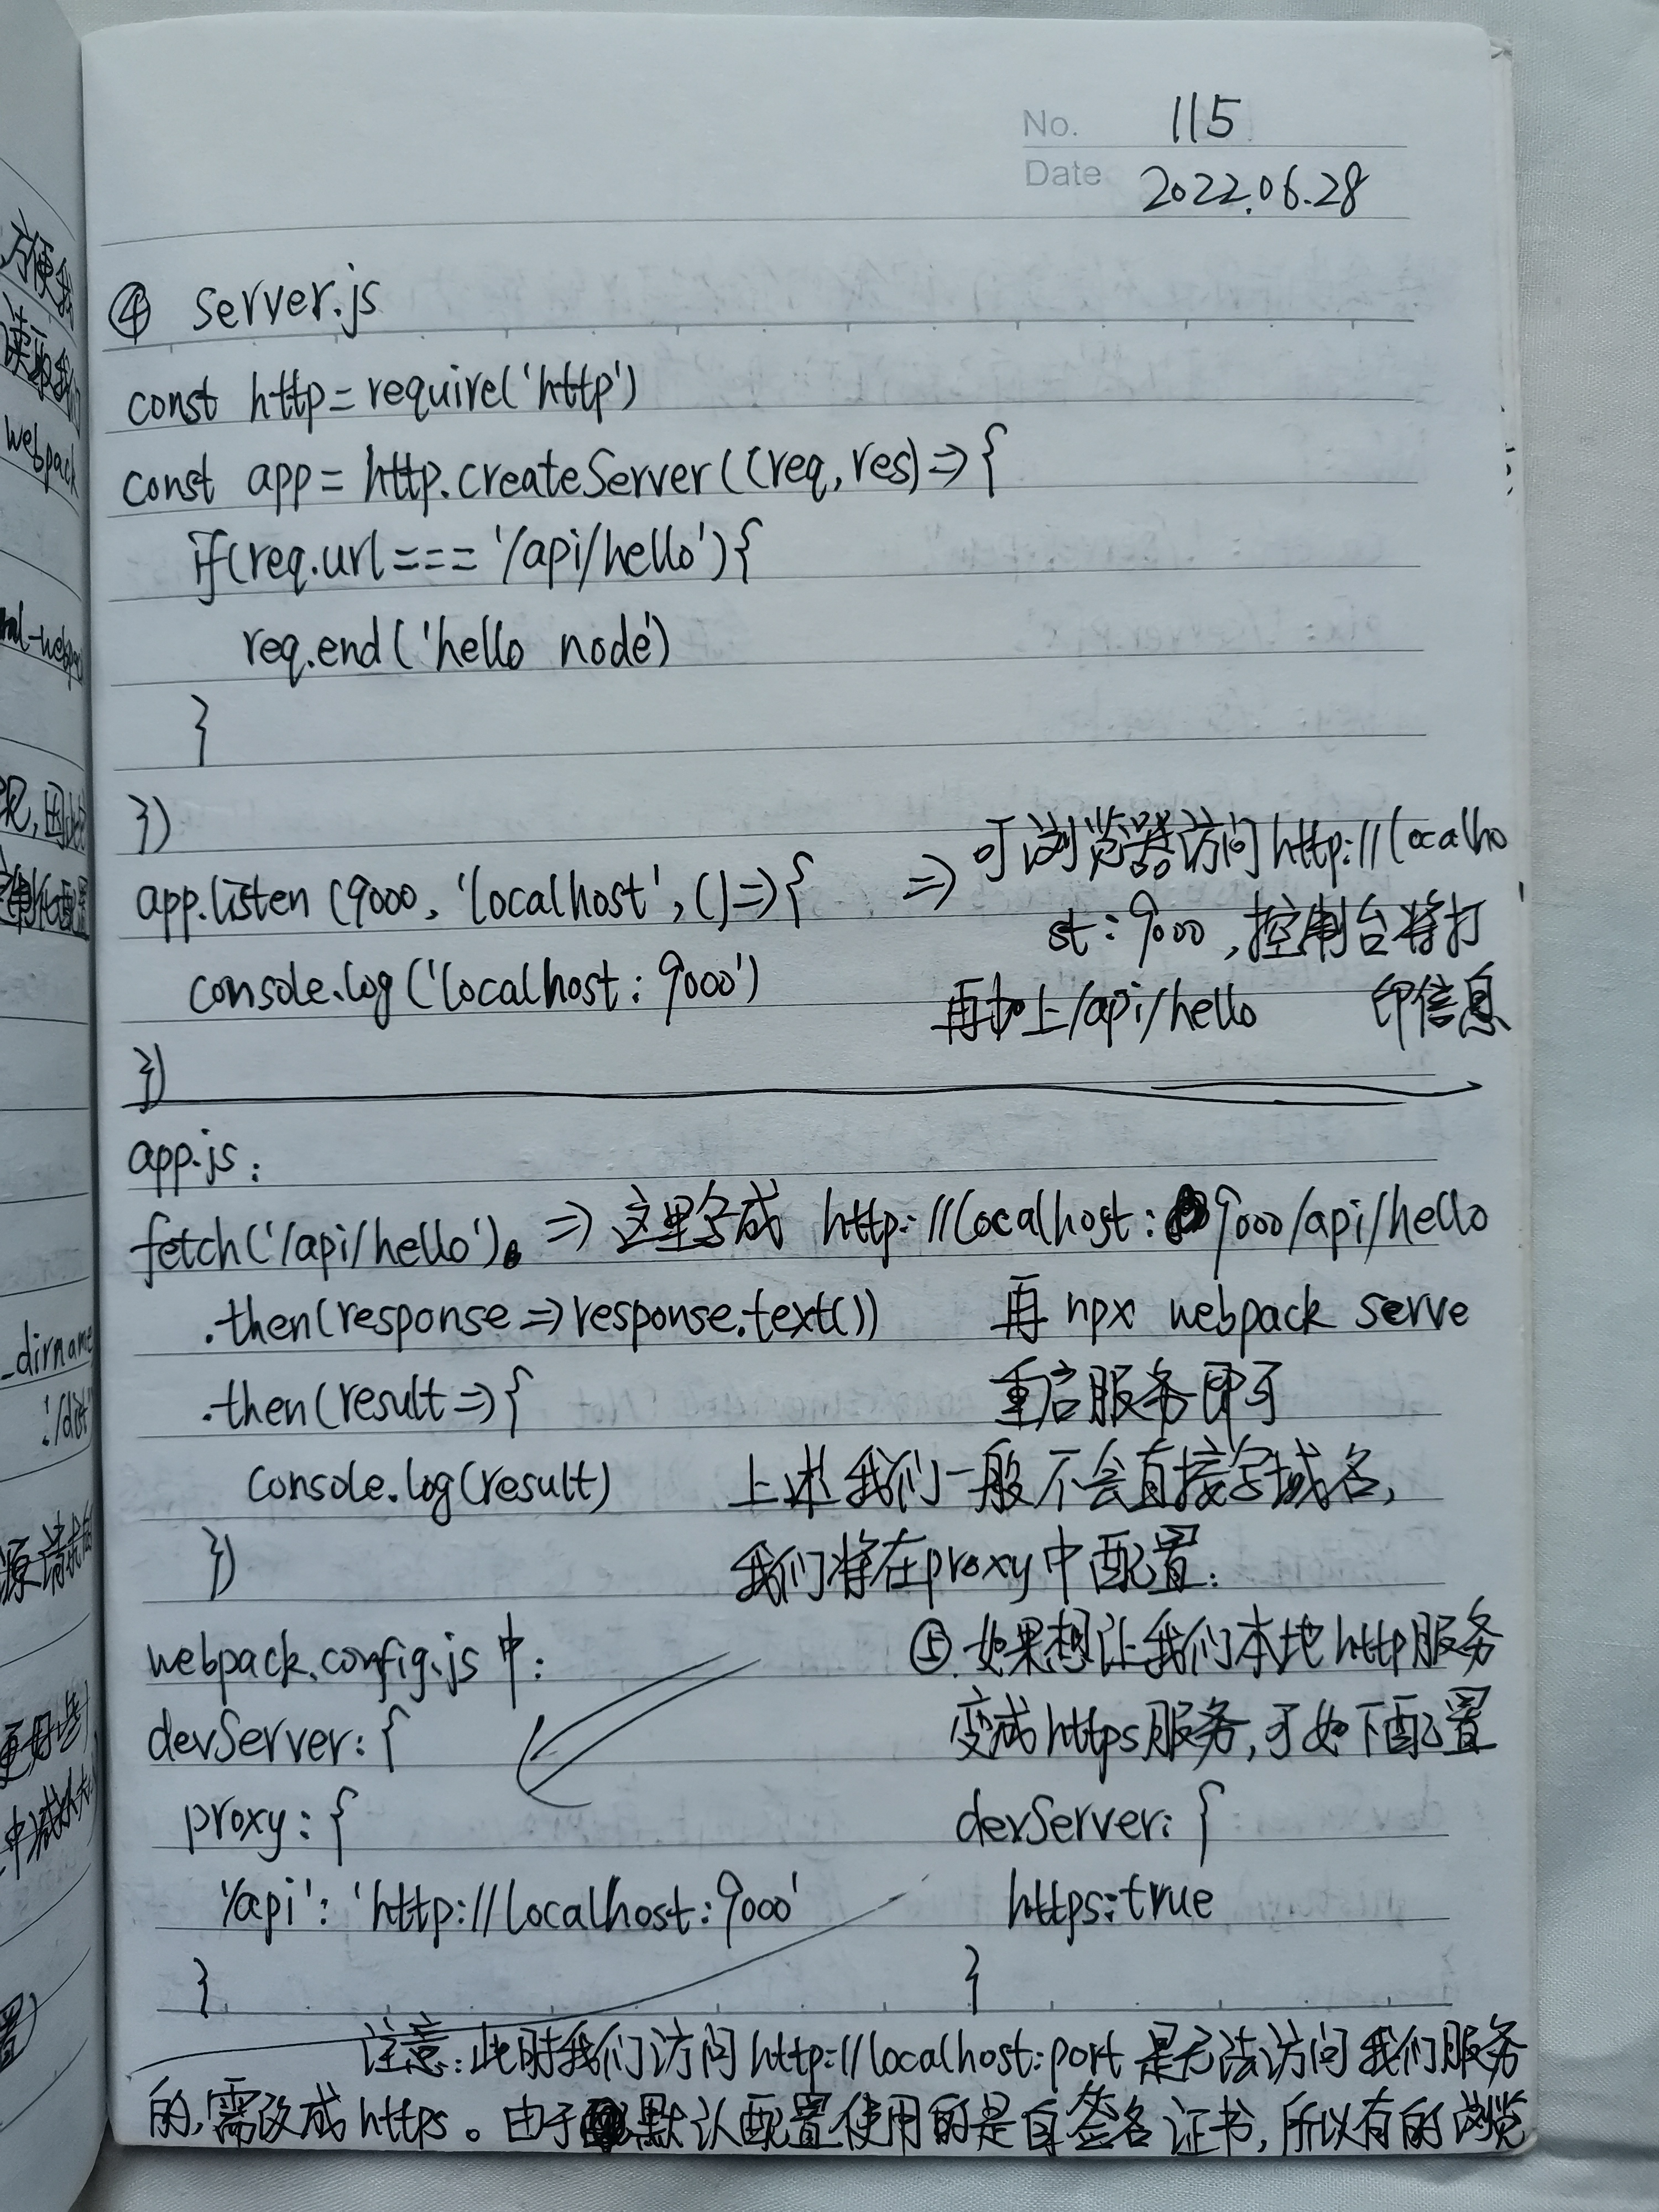 No. 115
Date 2022.06.28
④ server.js
const http = require('http')
const app = http.createServer((req, res) => {
if(req.url === '/api/hello'){
req.end('hello node')
}
})
app.listen(9000, 'localhost', () => {
console.log('localhost: 9000')
})
=> 可浏览器访问http://localho
st: 9000, 控制台将打
印信息
再加上/api/hello
app.js:
fetch('/api/hello')
=> 这里写成 http://localhost: 9000/api/hello
.then(response => response.text())
再 npx webpack serve
重启服务即可
.then(result => {
console.log(result)
})
上述我们一般不会直接写域名,
我们将在proxy中配置:
webpack.config.js 中:
devServer: {
proxy: {
'/api': 'http://localhost:9000'
}
⑤. 如果想让我们本地http服务
变成https服务, 可如下配置
devServer: {
https: true
}
注意: 此时我们访问http://localhost:port 是无法访问我们服务
的, 需改成https。由于默认配置使用的是自签名证书, 所以有的浏览
方便我
读取我们
webpack
现, 因此
_dirname